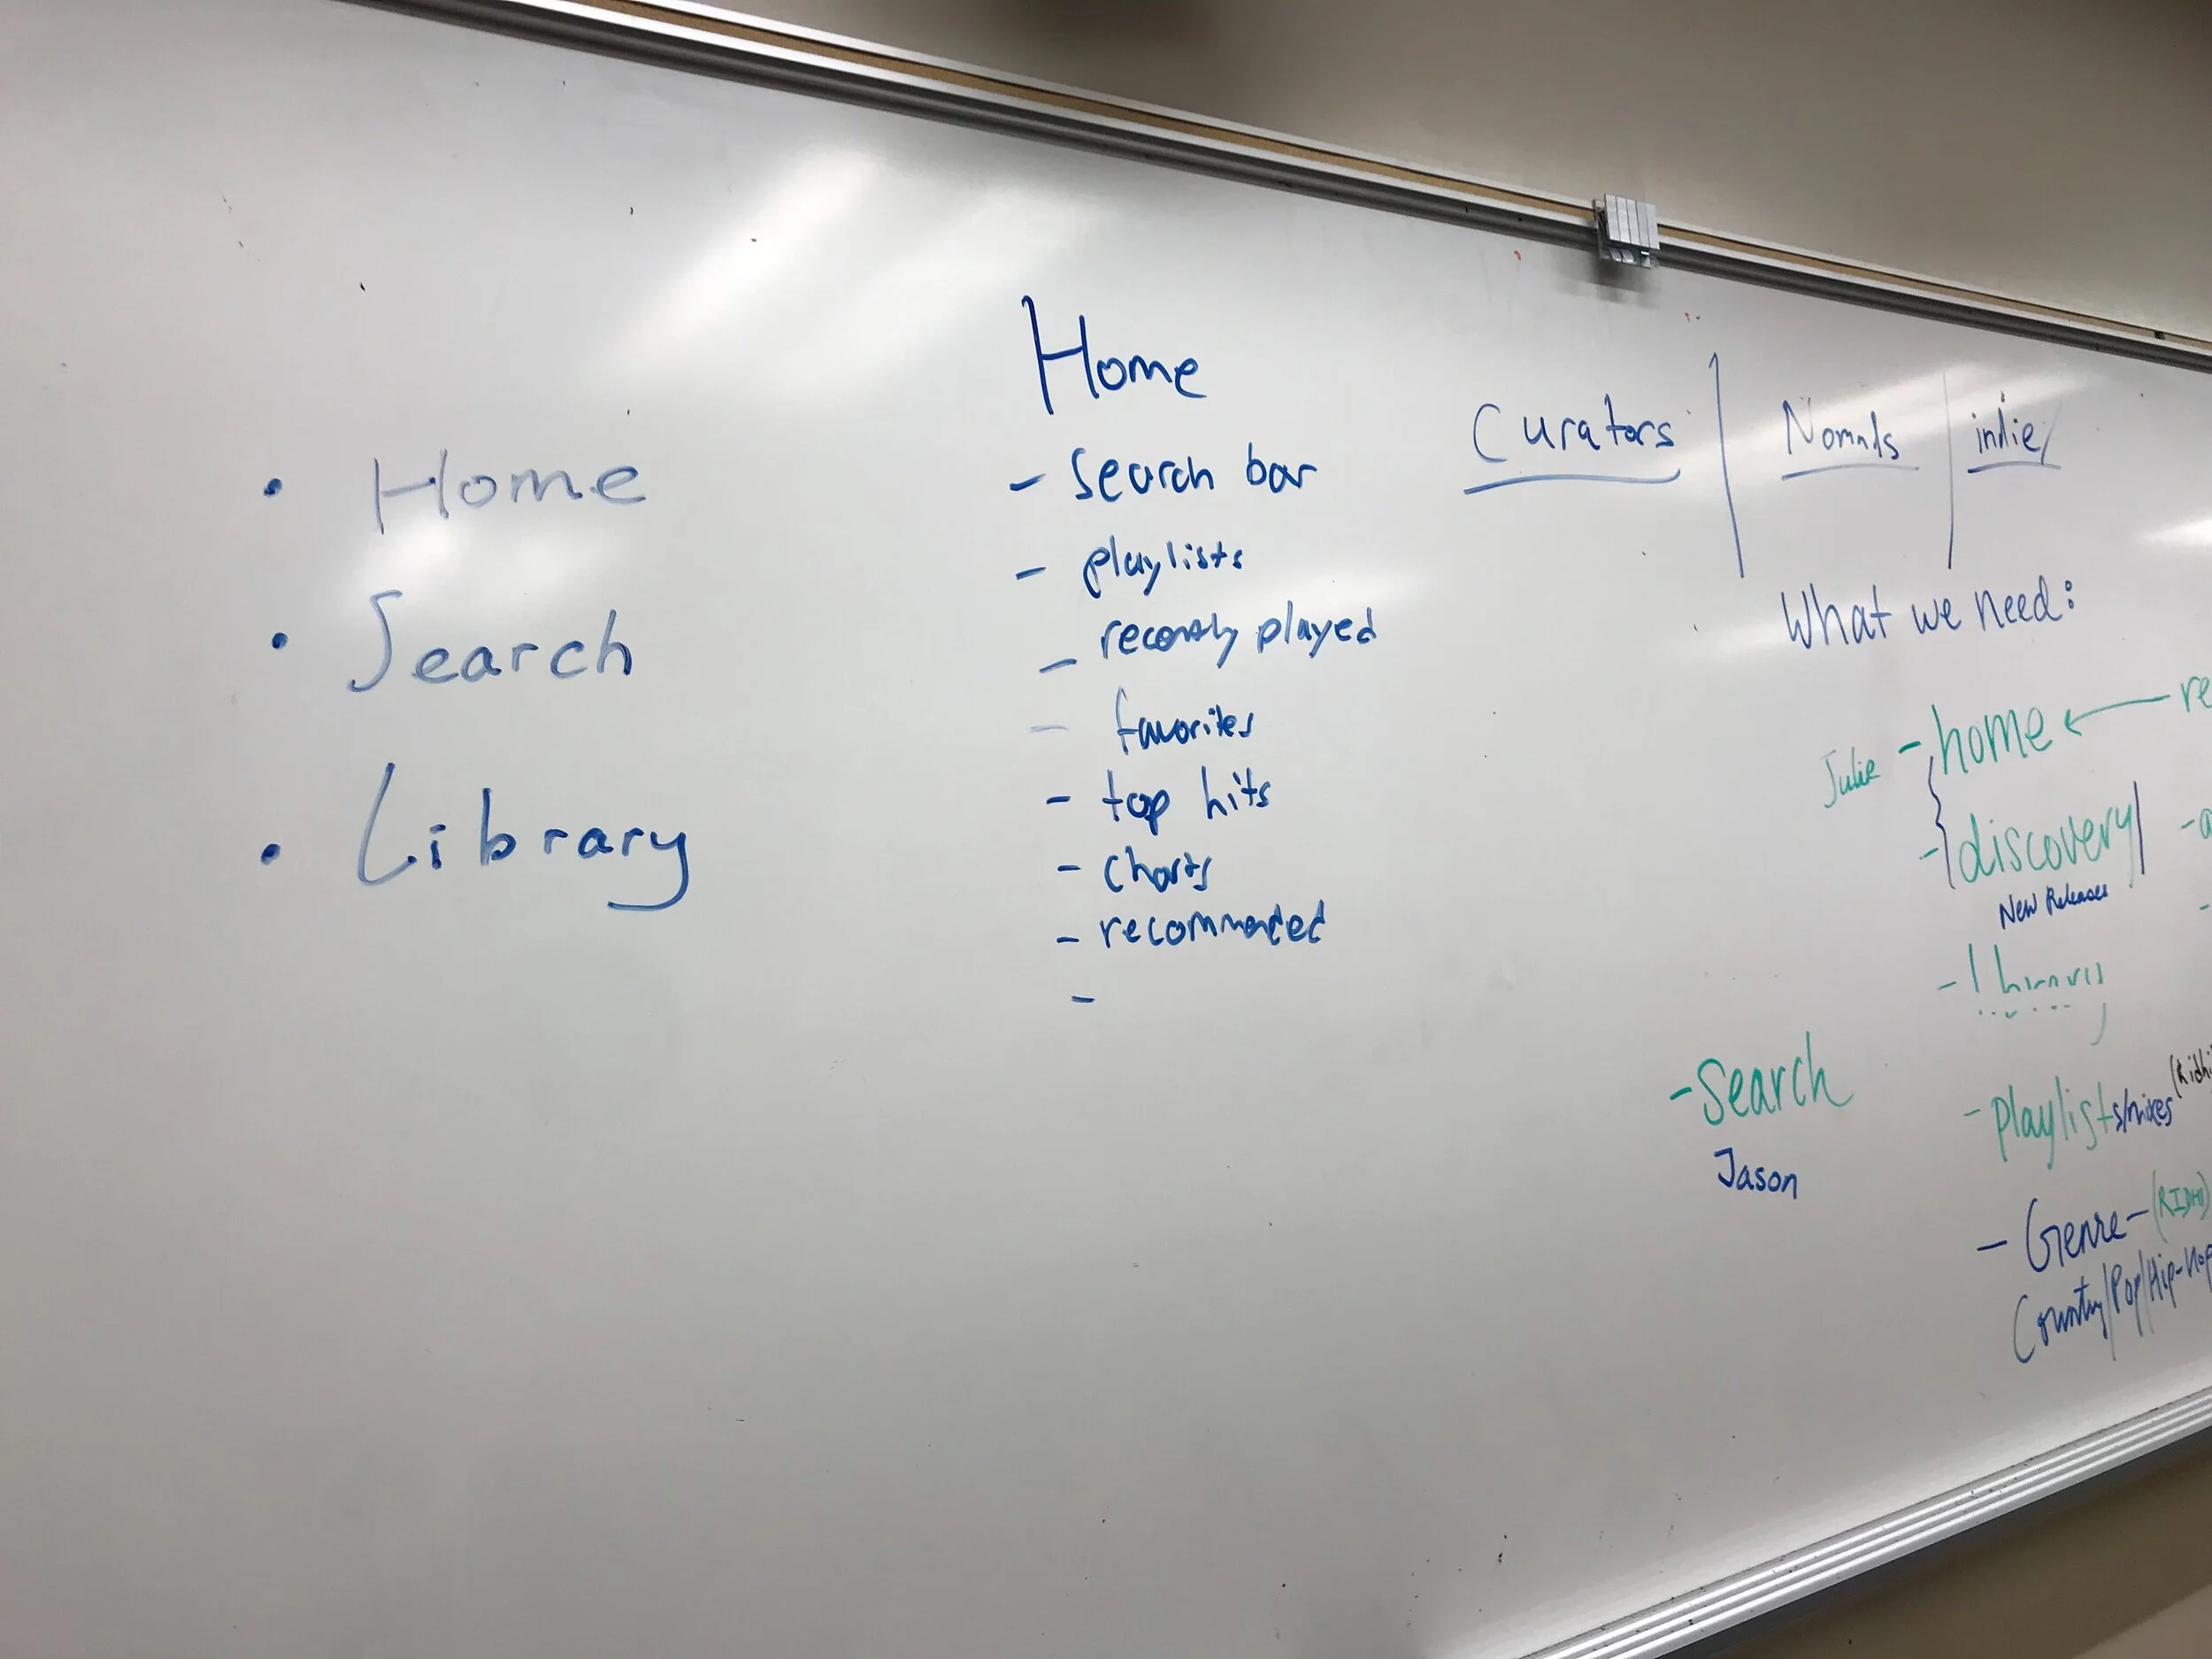 • Home
• Search
• Library
Home
- Search bar
- playlists
- recently played
- favorites
- top hits
- charts
- recommended
-
Curators | | indie
What we need:
Julie - home ←
- discovery
New Releases
- library
- Search
Jason
- playlists/mixes
- Genre - (RIDHI)
Country/Pop/Hip-Hop